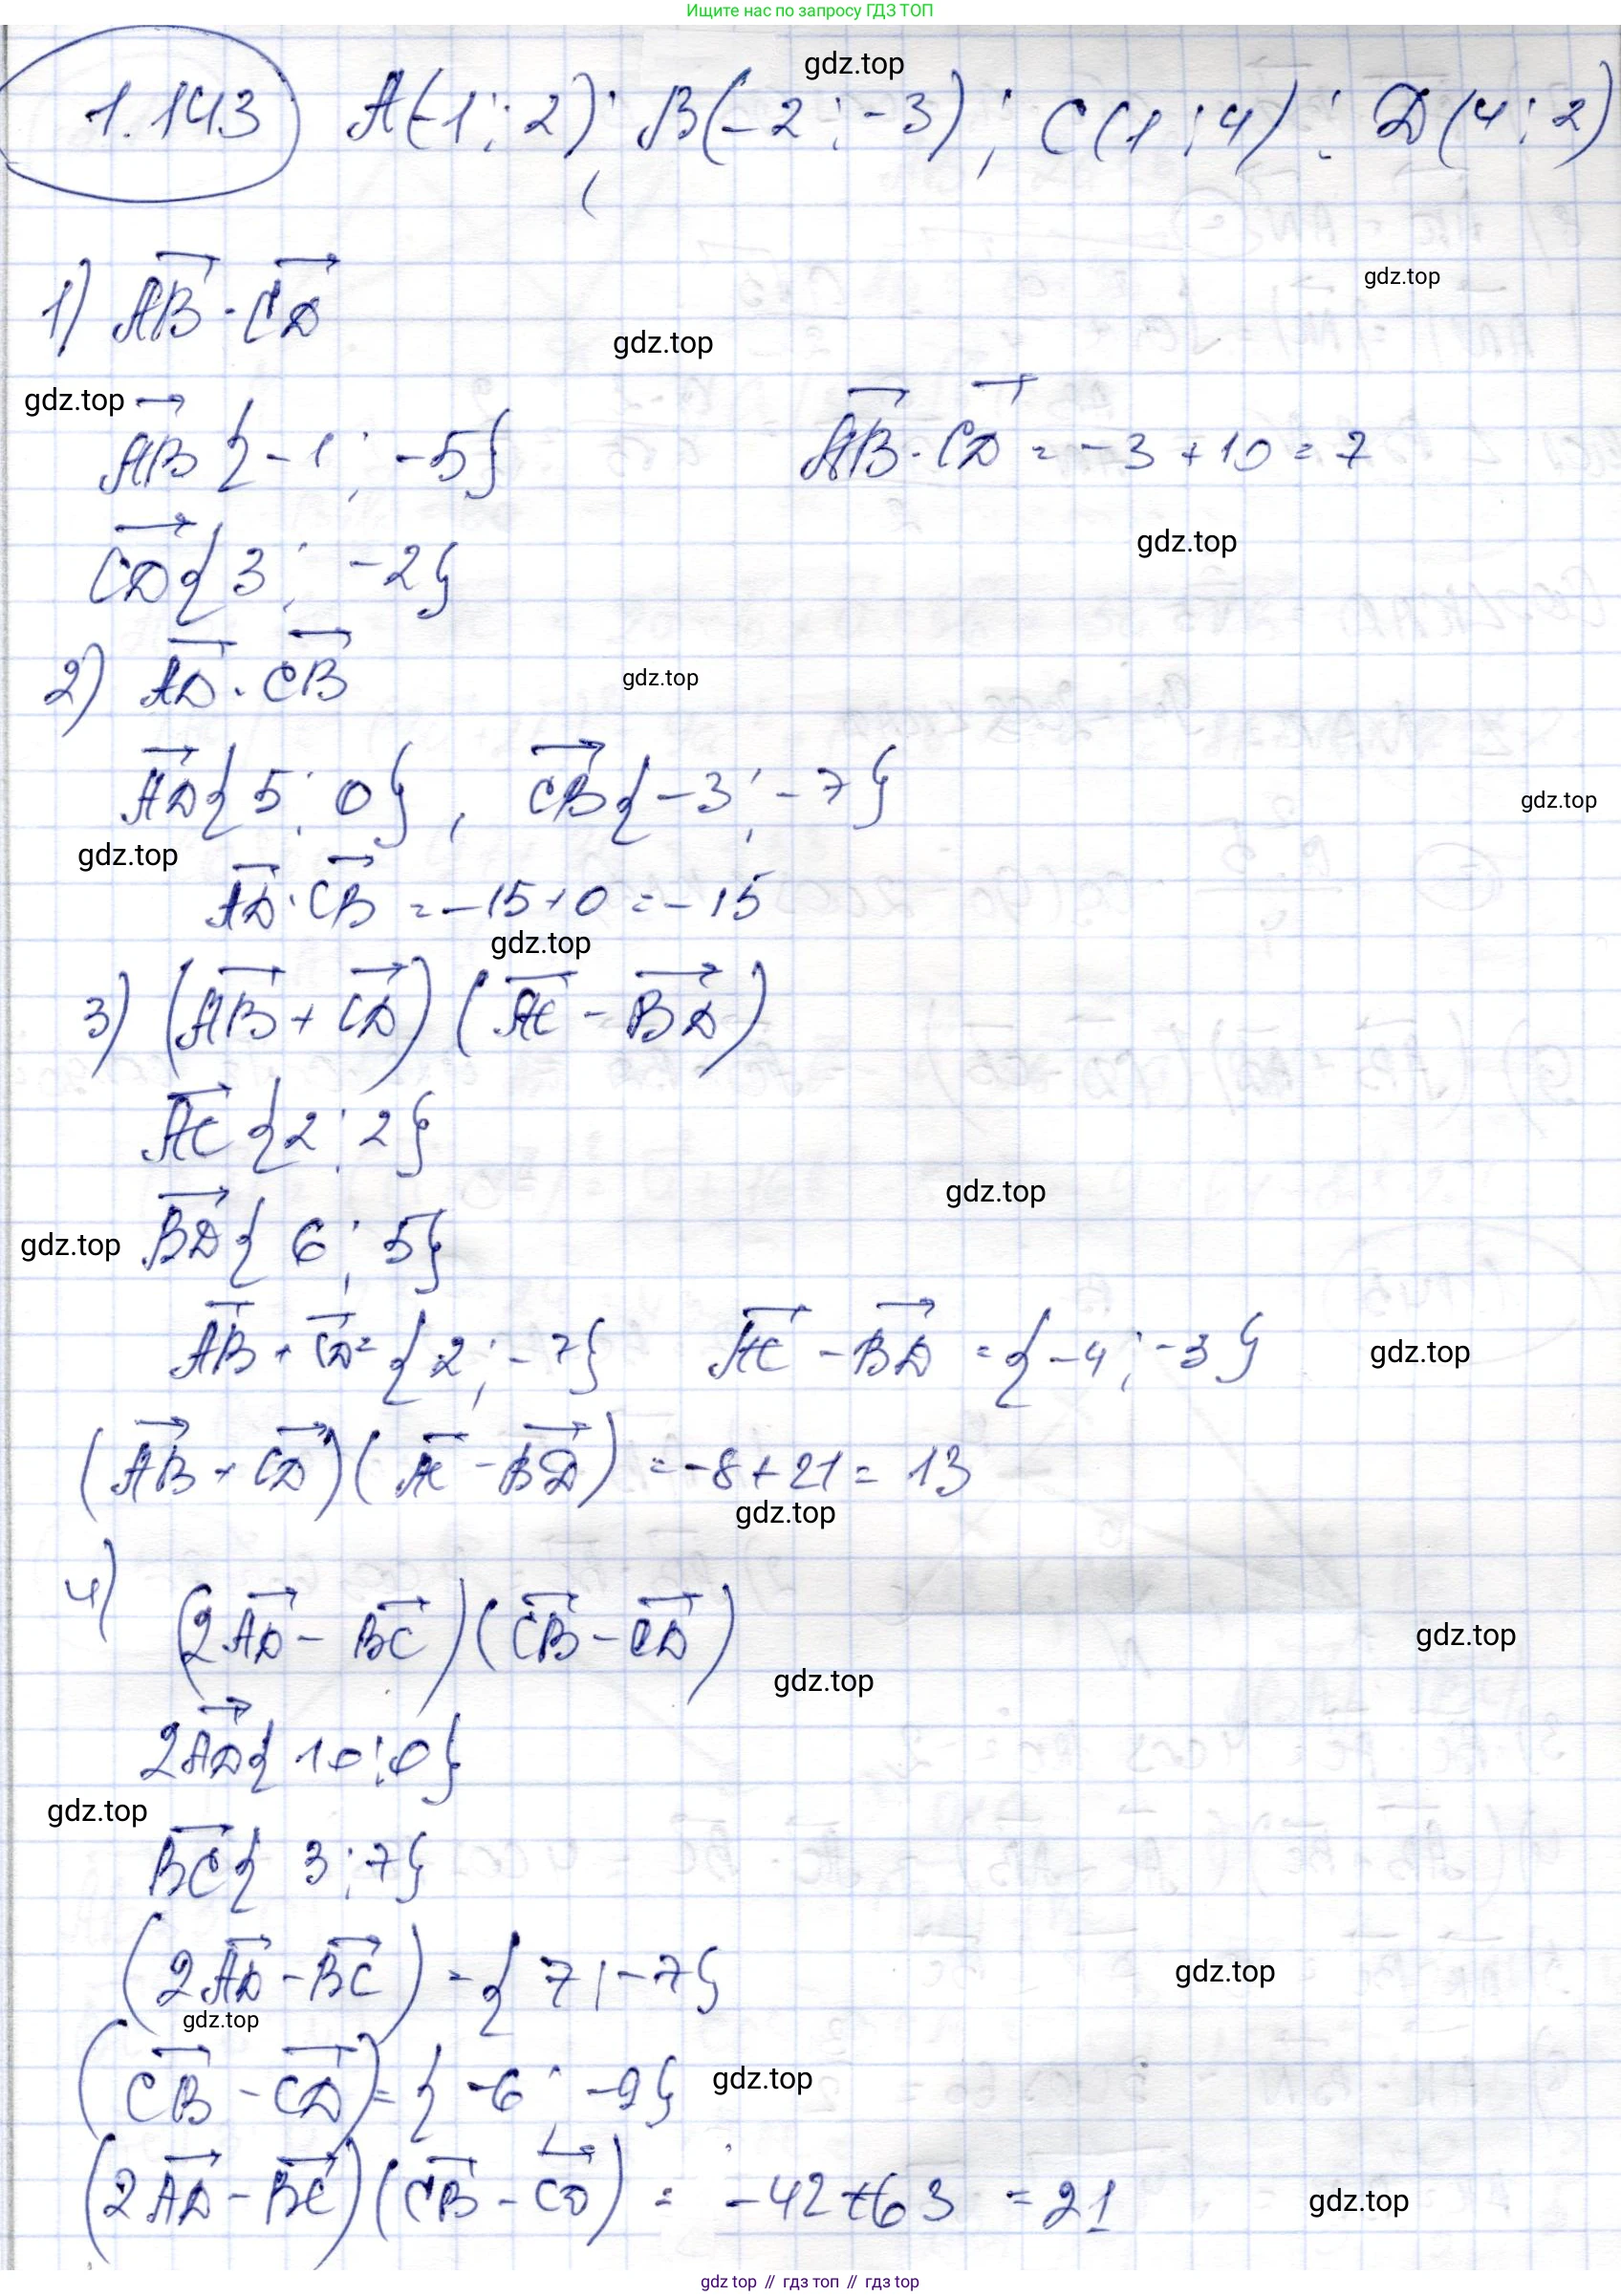 Ищите нас по запросу ГДЗ ТОП
gdz.top
1.143 A(-1; 2); B(-2; -3); C(1; 4); D(4; 2)
gdz.top
1) AB · CD
gdz.top
gdz.top
AB {-1; -5} AB · CD = -3 + 10 = 7
gdz.top
CD {3; -2}
2) AD · CB
gdz.top
AD {5; 0}, CB {-3; -7}
gdz.top
gdz.top
AD · CB = -15 + 0 = -15
gdz.top
3) (AB + CD) (AC - BD)
AC {2; 2}
gdz.top
gdz.top
BD {6; 5}
AB + CD = {2; -7} AC - BD = {-4; -3}
gdz.top
(AB + CD) (AC - BD) = -8 + 21 = 13
gdz.top
4) (2AD - BC) (CB - CD)
gdz.top
gdz.top
2AD {10; 0}
gdz.top
BC {3; 7}
(2AD - BC) = {7; -7}
gdz.top
gdz.top
(CB - CD) = {-6; -9}
gdz.top
(2AD - BC) (CB - CD) = -42 + 63 = 21
gdz.top
gdz top // гдз топ // гдз top